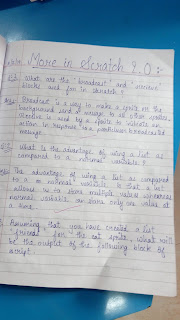 More in Scratch 2.0:-
Q.1 What are the "broadcast" and "receive"
blocks used for in scratch?
Ans. Broadcast is a way to make a sprite or the
background send a message to all other sprites.
Receive is used by a sprite to initiate an
action in response to a particular broadcasted
message.
Q.2 What is the advantage of using a list as
compared to a normal variable?
Ans. The advantage of using a list as compared
to a normal variable is that a list
allows us to store multiple values whereas
normal variable can store only one value at
a time.
Assuming that you have created a list
"friends" for the cat sprite, what will
be the output of the following block of
script.